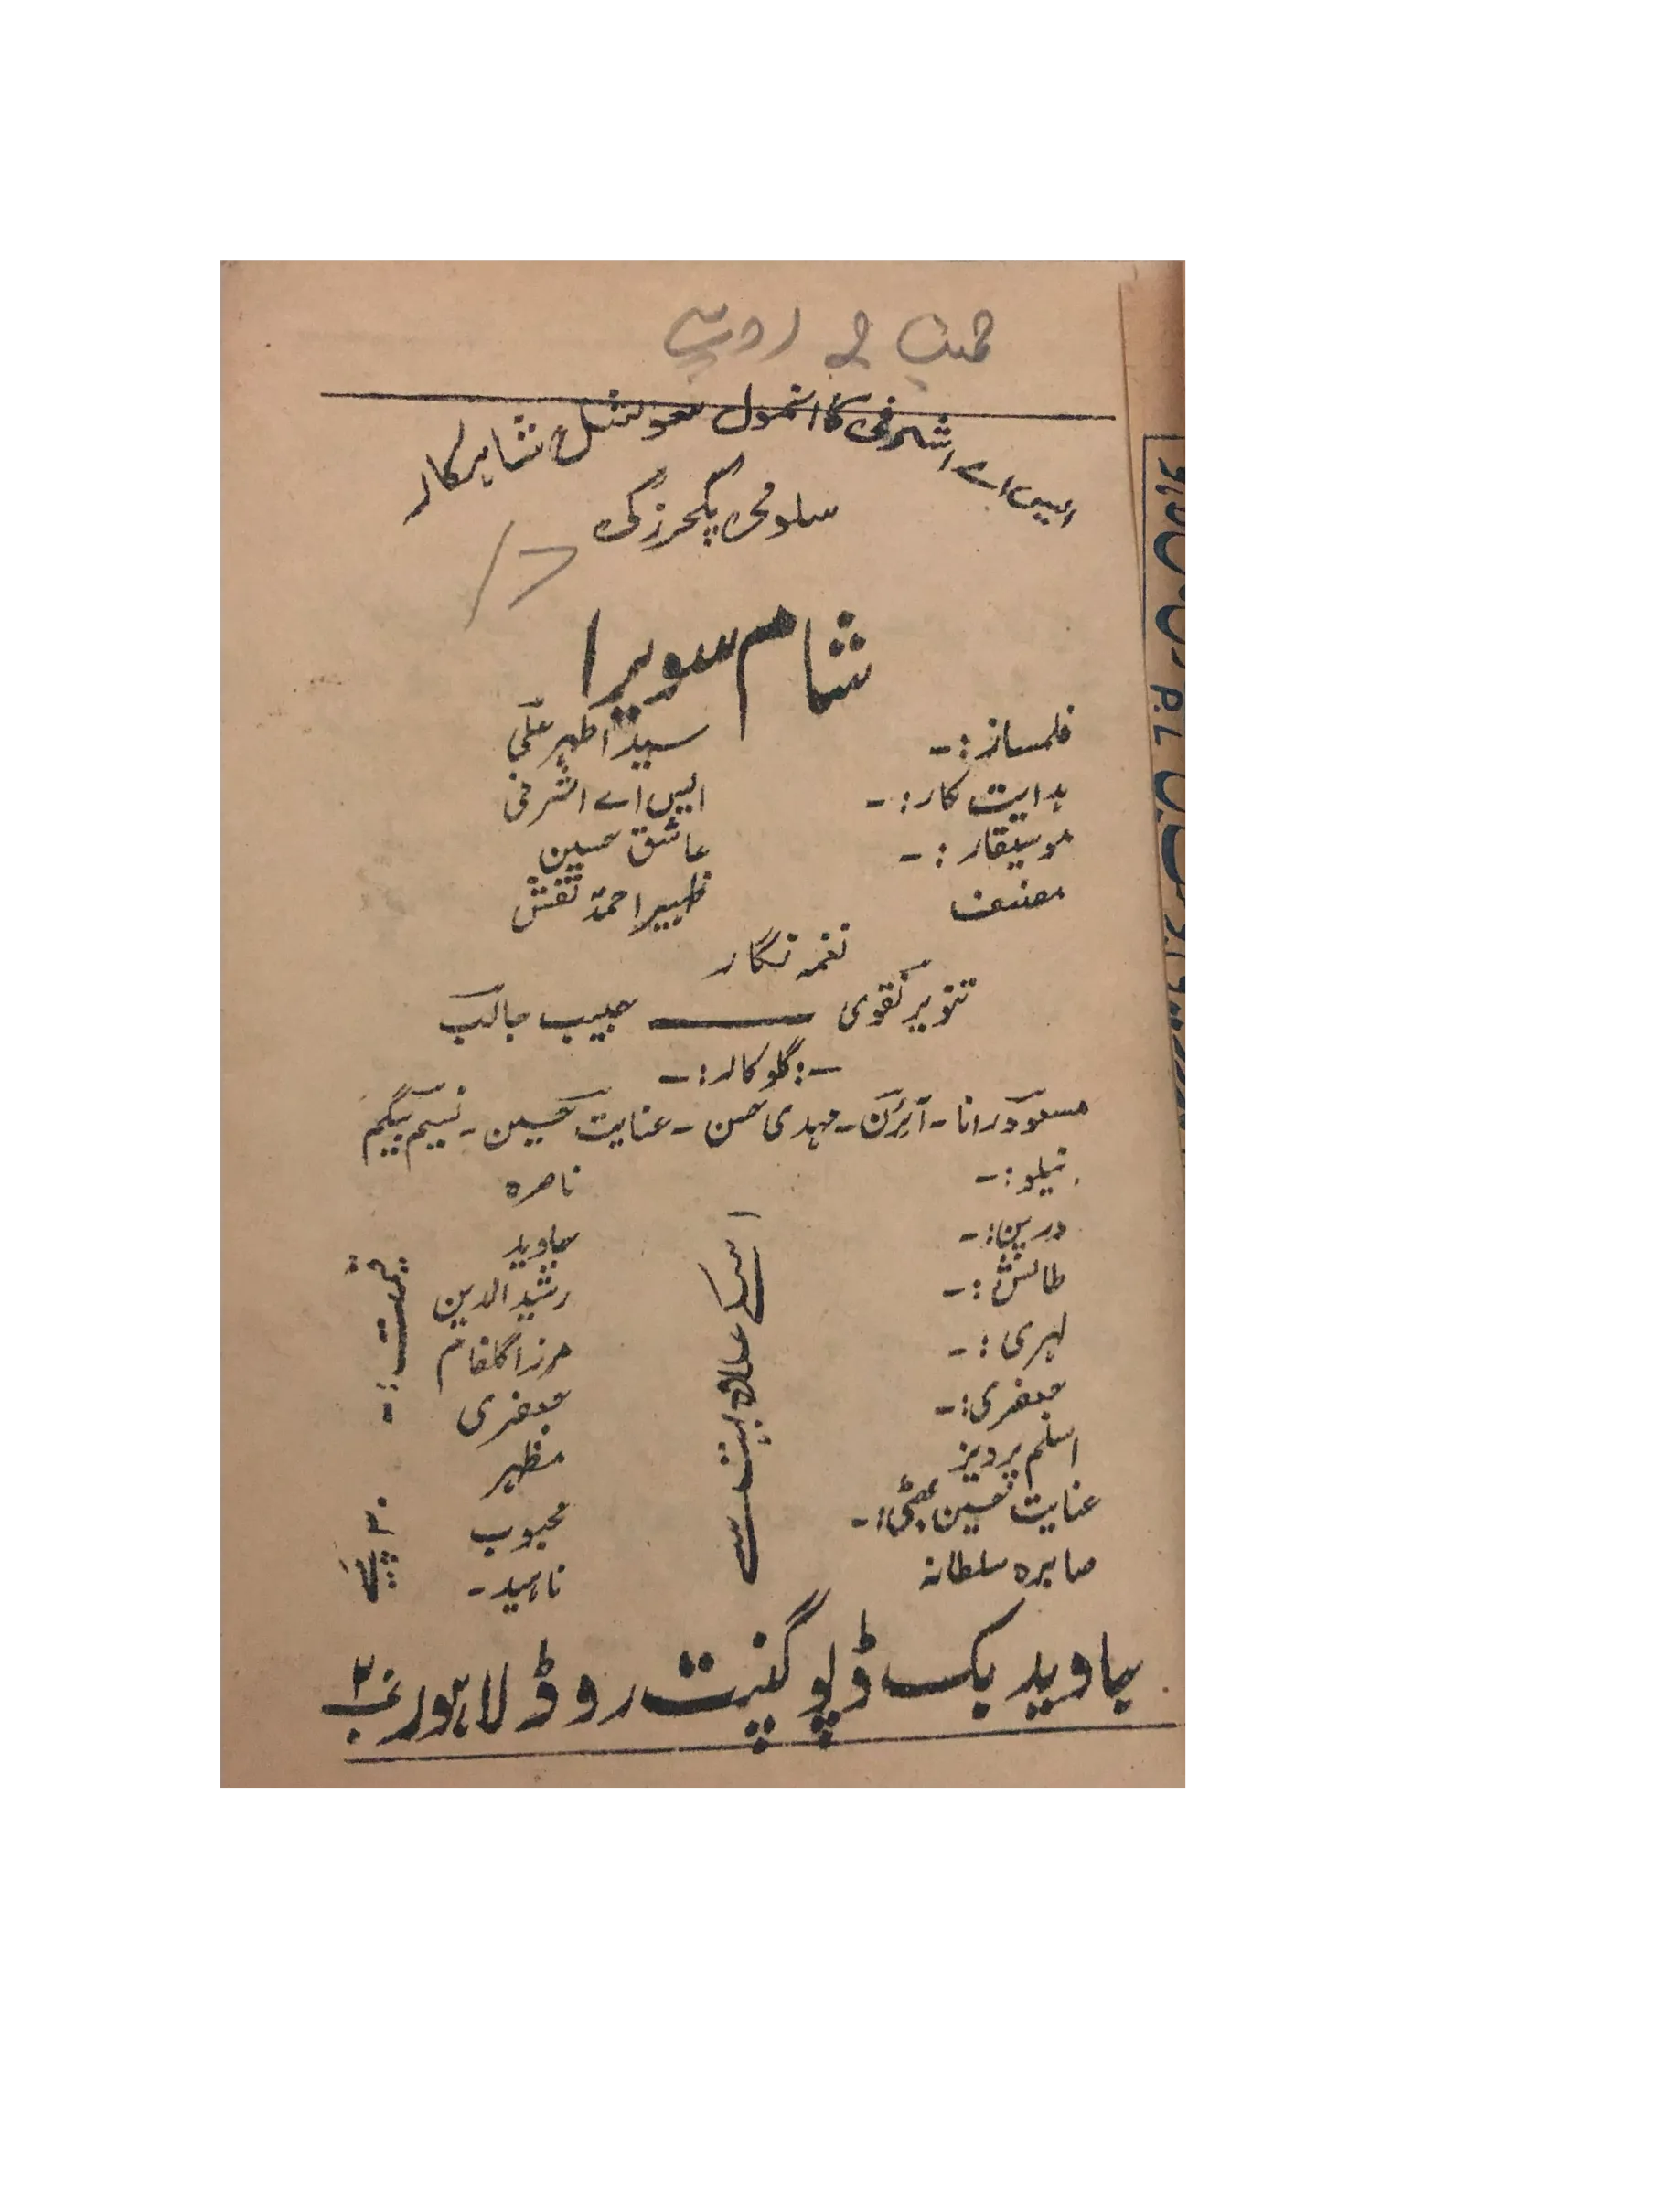 قیمت 2 روپے
ایس اے اشرفی کا انمول سوشل شاہکار
سلومی پکچرز کی
شام سویرا
فلمساز :- سید اظہر علی
ہدایت کار :- ایس اے اشرفی
موسیقار :- عاشق حسین
مصنف ظہیر احمد نقش
نغمہ نگار
تنویر نقوی —— حبیب جالب
-: گلوکار :-
مسعود رانا - آئرن - مہدی حسن - عنایت حسین - نسیم بیگم
نیلو :- ناصرہ
درپن :- جاوید
طالش :- رشید الدین
لہری :- مرزا گلفام
جعفری :- جعفری
اسلم پرویز مظہر
عنایت حسین بھٹی :- محبوب
صابرہ سلطانہ ناہید -
اسکے علاوہ بہت سے
قیمت :- ۲۰ پیسے
جاوید بک ڈپو گنپت روڈ لاہور نمبر ۲